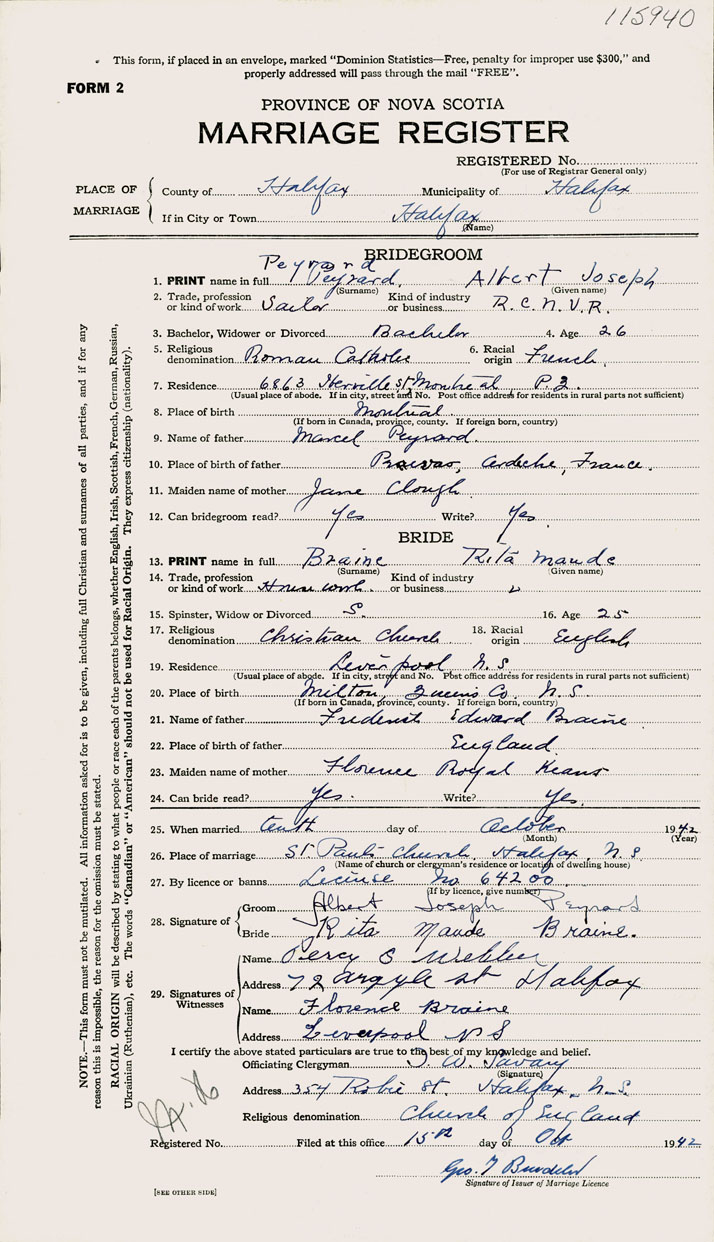 115940
This form, if placed in an envelope, marked "Dominion Statistics—Free, penalty for improper use $300," and
properly addressed will pass through the mail "FREE".
FORM 2
PROVINCE OF NOVA SCOTIA
MARRIAGE REGISTER
REGISTERED No.
(For use of Registrar General only)
PLACE OF MARRIAGE
County of Halifax Municipality of Halifax
If in City or Town Halifax
(Name)
BRIDEGROOM
Peyrard
1. PRINT name in full Peyrard. Albert Joseph
(Surname) (Given name)
2. Trade, profession or kind of work Sailor Kind of industry or business R.C.N.V.R.
3. Bachelor, Widower or Divorced Bachelor 4. Age 26
5. Religious denomination Roman Catholic 6. Racial origin French
7. Residence 6863 Iberville st, Montreal P.Q.
(Usual place of abode. If in city, street and No. Post office address for residents in rural parts not sufficient)
8. Place of birth Montreal
(If born in Canada, province, county. If foreign born, country)
9. Name of father Marcel Peyrard.
10. Place of birth of father Ardeche, France.
11. Maiden name of mother Jane Clough
12. Can bridegroom read? Yes Write? Yes
BRIDE
13. PRINT name in full Braine Rita Maude
(Surname) (Given name)
14. Trade, profession or kind of work Housework. Kind of industry or business
15. Spinster, Widow or Divorced S. 16. Age 25
17. Religious denomination Christian Church 18. Racial origin English
19. Residence Liverpool N.S
(Usual place of abode. If in city, street and No. Post office address for residents in rural parts not sufficient)
20. Place of birth Milton, Queens Co. N.S.
(If born in Canada, province, county. If foreign born, country)
21. Name of father Frederick Edward Braine
22. Place of birth of father England
23. Maiden name of mother Florence Royal Keans
24. Can bride read? Yes. Write? Yes.
25. When married tenth day of October 1942
(Month) (Year)
26. Place of marriage St Paul's Church, Halifax, N.S.
(Name of church or clergyman's residence or location of dwelling house)
27. By licence or banns License No 64200
(If by licence, give number)
28. Signature of
Groom Albert Joseph Peyrard
Bride Rita Maude Braine.
29. Signatures of Witnesses
Name Percy S Webber
Address 72 Argyle st Halifax
Name Florence Braine
Address Liverpool NS
I certify the above stated particulars are true to the best of my knowledge and belief.
Officiating Clergyman T. W. Savary
(Signature)
Address 354 Robie st. Halifax, N.S.
Religious denomination Church of England
Registered No. Filed at this office 15th day of Oct 1942
Geo. T
Signature of Issuer of Marriage Licence
[SEE OTHER SIDE]
NOTE.—This form must not be mutilated. All information asked for is to be given, including full Christian and surnames of all parties, and if for any
reason this is impossible, the reason for the omission must be stated.
RACIAL ORIGIN will be described by stating to what people or race each of the parents belongs, whether English, Irish, Scottish, French, German, Russian,
Ukrainian (Ruthenian), etc. The words "Canadian" or "American" should not be used for Racial Origin. They express citizenship (nationality).